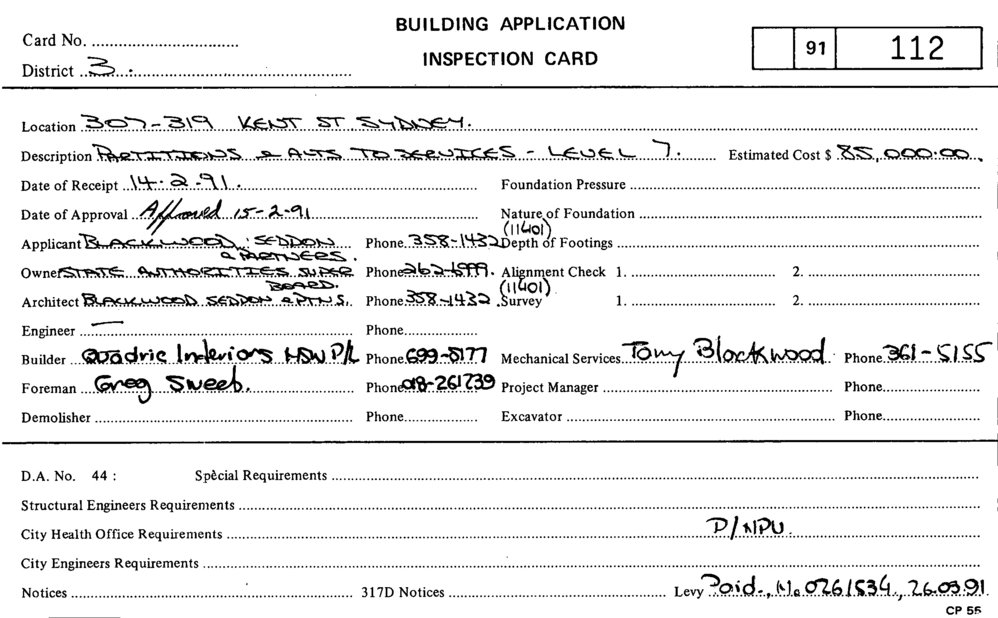 BUILDING APPLICATION
INSPECTION CARD
Card No.
91 112
District 3
Location 307-319 KENT ST SYDNEY.
Description PARTITIONS & ALTS TO SERVICES - LEVEL 7. Estimated Cost $ 85,000.00
Date of Receipt 14.2.91. Foundation Pressure
Date of Approval Approved 15-2-91 Nature of Foundation
Applicant BLACKWOOD, SEDDON & PARTNERS. Phone 358-1432 (11401) Depth of Footings
Owner STATE AUTHORITIES SUPER BOARD. Phone 262-6999. Alignment Check 1. 2.
Architect BLACKWOOD SEDDON & PTNS. Phone 358-1432 (11401) Survey 1. 2.
Engineer — Phone
Builder Quadric Interiors NSW P/L Phone 699-5177 Mechanical Services Tony Blackwood Phone 361-5155
Foreman Greg Sweeb. Phone 018-261239 Project Manager Phone
Demolisher Phone Excavator Phone
D.A. No. 44 : Special Requirements
Structural Engineers Requirements
City Health Office Requirements P/NPU.
City Engineers Requirements
Notices 317D Notices Levy Paid., No 0261534., 26.03.91.
CP 55